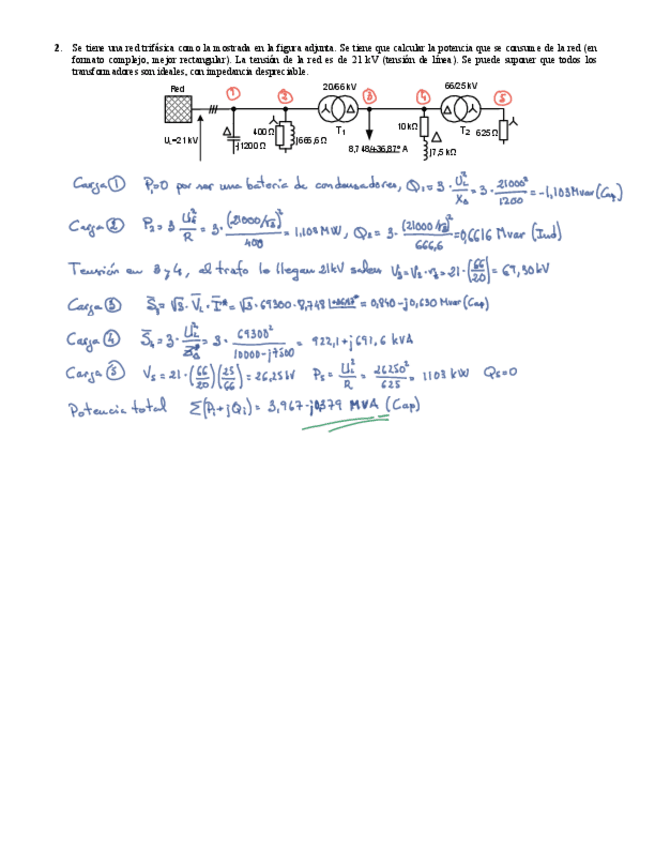 2. Se tiene una red trifásica como la mostrada en la figura adjunta. Se tiene que calcular la potencia que se consume de la red (en
formato complejo, mejor rectangular). La tensión de la red es de 21 kV (tensión de línea). Se puede suponer que todos los
transformadores son ideales, con impedancia despreciable.
Red
1
2
20/66 kV
3
4
66/25 kV
5
UL=21 kV
-j1200 Ω
400 Ω
j666,6 Ω
T1
8,748∠+36,87° A
10 kΩ
j7,5 kΩ
T2
625 Ω
Carga ① P₁=0 por ser una batería de condensadores, Q₁ = 3 · U_L²/X_Δ = 3 · 21000²/1200 = -1,103 Mvar (Cap)
Carga ② P₂ = 3 U_f²/R = 3 · (21000/√3)²/400 = 1,103 MW, Q₂ = 3 · (21000/√3)²/666,6 = 0,6616 Mvar (Ind)
Tensión en 3 y 4, al trafo le llegan 21kV salen V₃=V₄=V₂·r₁=21·(66/20)=69,30kV
Carga ③ S̄₃ = √3 · V̄_L · Ī* = √3 · 69300 · 8,748 = 0,840 - j0,630 Mvar (Cap)
Carga ④ S̄₄ = 3 · U_L²/Z̄_Δ* = 3 · 69300²/10000-j7500 = 922,1 + j691,6 kVA
Carga ⑤ V₅ = 21 · (66/20)(25/66) = 26,25kV P₅ = U_L²/R = 26250²/625 = 1103 kW Q₅=0
Potencia total Σ(Pᵢ+jQᵢ) = 3,967-j0,379 MVA (Cap)